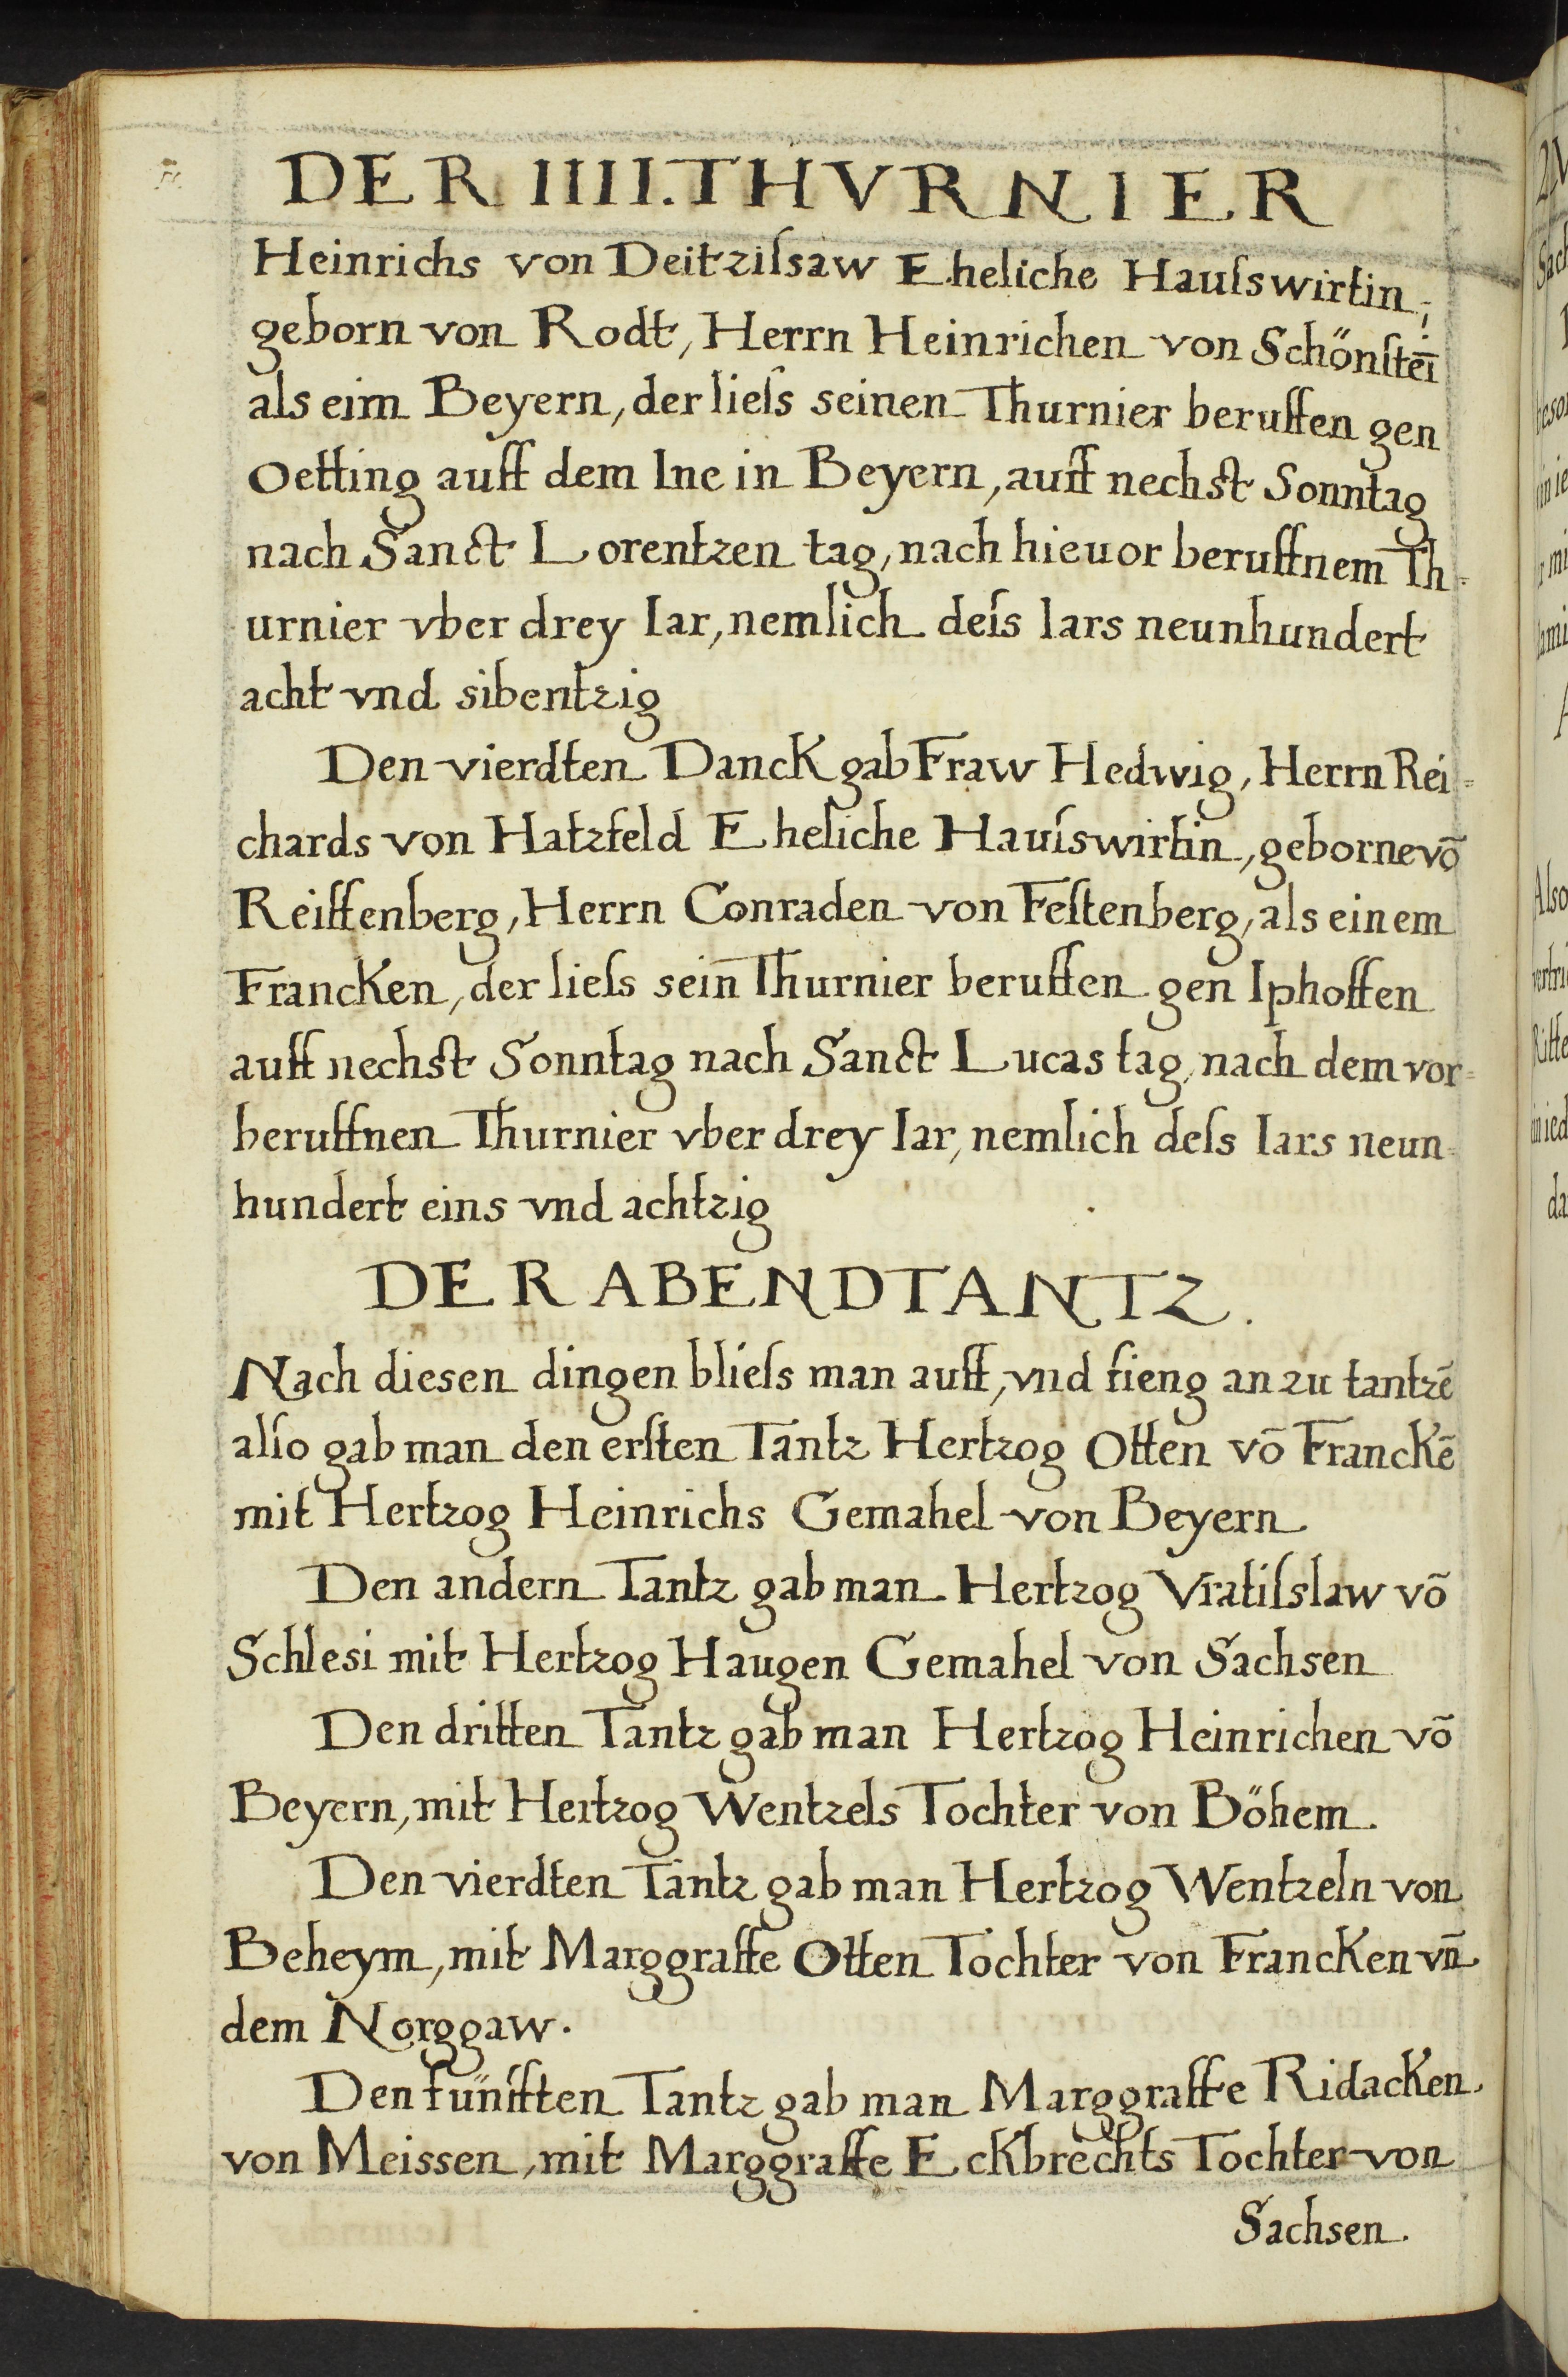 DER IIII. THVRNIER
Heinrichs von Deitzilsaw Eheliche Hausſwirtin,
geborn von Rodt, Herrn Heinrichen von Schönſteī
als eim Beyern, der lieſs seinen Thurnier beruffen gen
Oetting auff dem Ine in Beyern, auff nechst Sonntag
nach Sanct Lorentzen tag, nach hieuor beruffnem Th=
urnier vber drey Iar, nemlich deſs Iars neunhundert
acht vnd sibentzig
Den vierdten Danck gab Fraw Hedwig, Herrn Rei=
chards von Hatzfeld Eheliche Hauſswirtin, geborne vō
Reiffenberg, Herrn Conraden von Feſtenberg, als einem
Francken, der lieſs sein Thurnier beruffen gen Iphoffen
auff nechst Sonntag nach Sanct Lucas tag, nach dem vor=
beruffnen Thurnier vber drey Iar, nemlich deſs Iars neun=
hundert eins vnd achtzig
DER ABENDTANTZ.
Nach diesen dingen blieſs man auff, vnd fieng an zu tantzē
alſo gab man den erſten Tantz Hertzog Otten vō Franckē
mit Hertzog Heinrichs Gemahel von Beyern
Den andern Tantz gab man Hertzog Vratiſslaw vō
Schlesi mit Hertzog Haugen Gemahel von Sachsen
Den dritten Tantz gab man Hertzog Heinrichen vō
Beyern, mit Hertzog Wentzels Tochter von Böhem.
Den vierdten Tantz gab man Hertzog Wentzeln von
Beheym, mit Marggraffe Otten Tochter von Francken vn̄
dem Norggaw.
Den fünfften Tantz gab man Marggraffe Ridacken
von Meissen, mit Marggraffe Eckbrechts Tochter von
Sachsen.